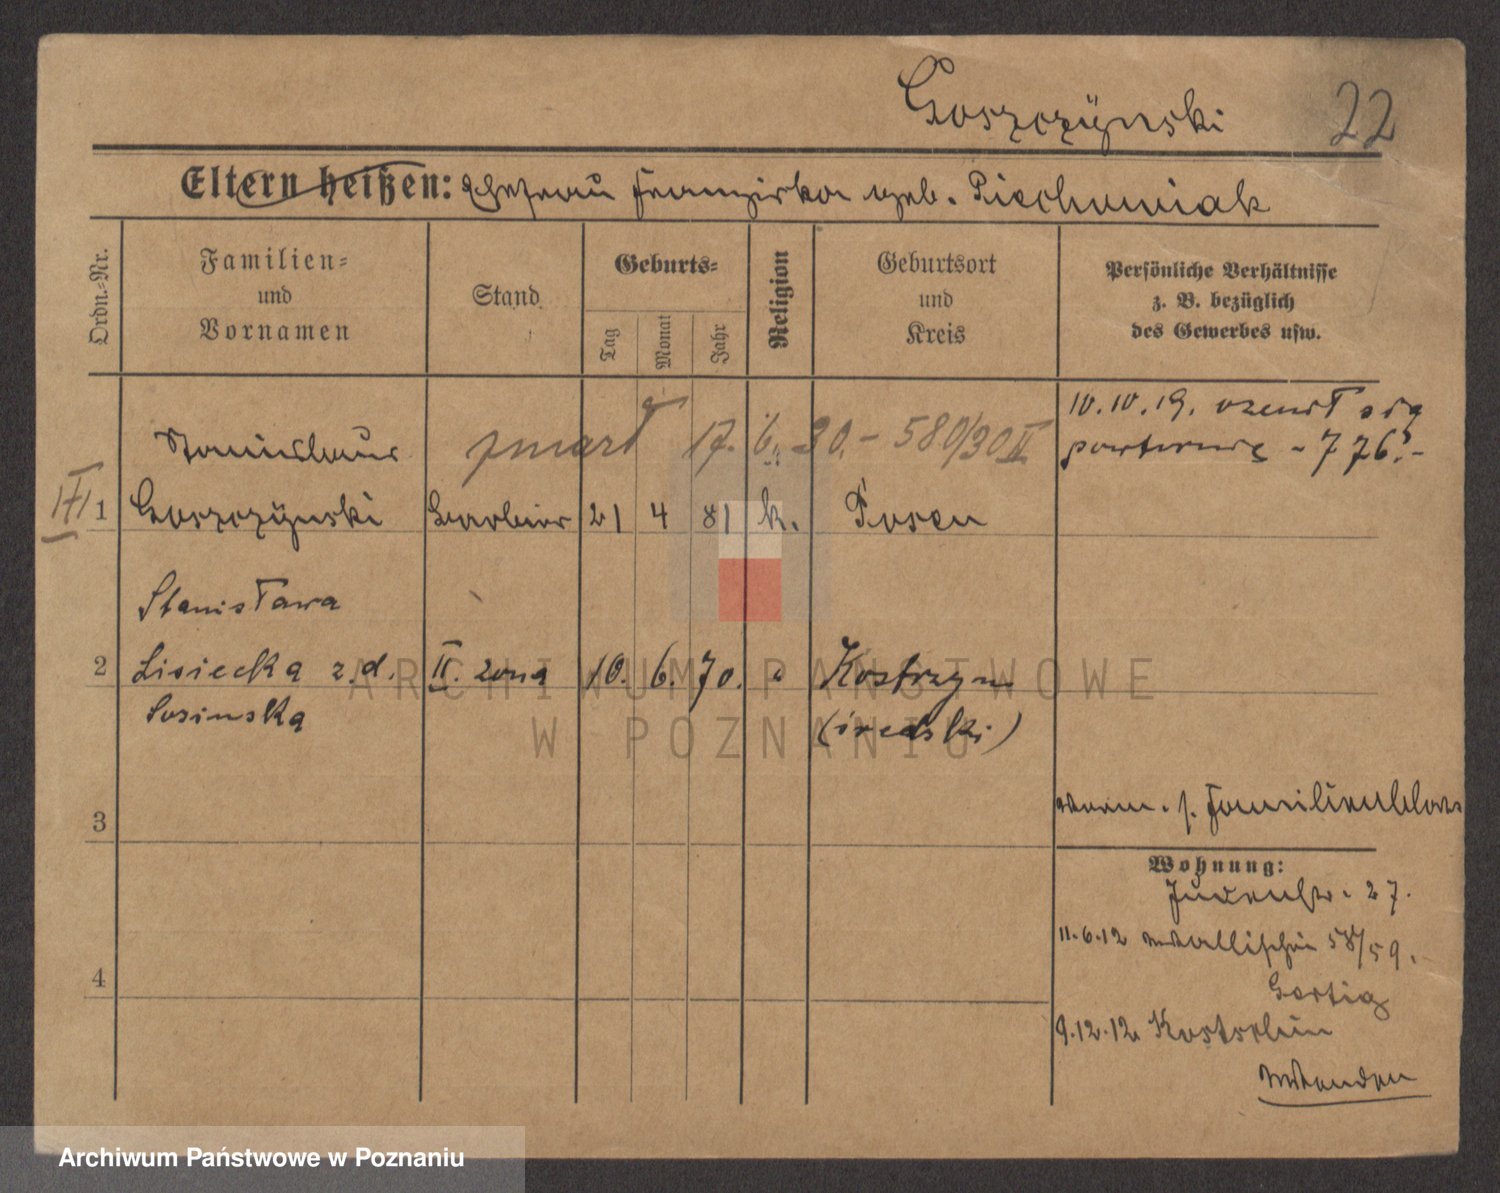 Goszczÿnski
22
Eltern heißen: Ehefrau Franziska geb. Piechowiak
Ordn.-Nr.
Familien-
und
Vornamen
Stand
Geburts-
Tag
Monat
Jahr
Religion
Geburtsort
und
Kreis
Persönliche Verhältnisse
z. B. bezüglich
des Gewerbes usw.
10.10.19.
776
Stanislaus
zmarł 17. 6. 30. - 580/30 II
1 Goszczÿnski Barbier 21 4 81 k. Posen
Stanisława
2 Lisiecka z.d. II. żona 10. 6. 70. Kostrzyn
Sosinska
(średzki)
3
verm. s. Familienblatt
Wohnung:
Judenstr. 27.
11.6.12 Wallischei 58/59.
4
9.12.12 Kostschin
Wenden
ARCHIWUM PAŃSTWOWE
W POZNANIU
Archiwum Państwowe w Poznaniu